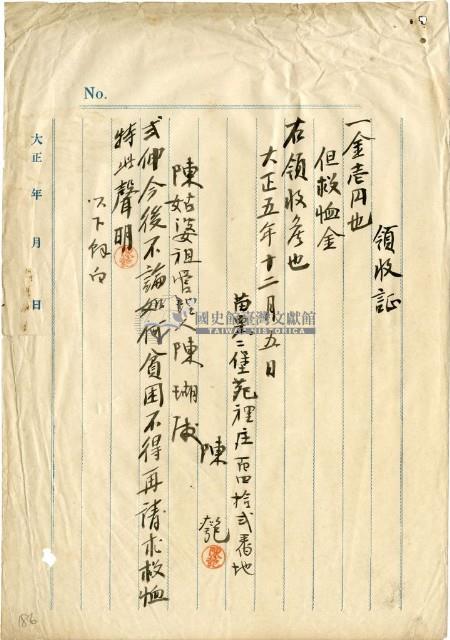 No.
領收証
一金壱円也
但救恤金
右領收候也
大正五年十二月五日
苗栗二堡苑裡庄百四拾弍番地
陳
陳姑婆祖管理人陳瑚 殿
弍伸今後不論如何貧困不得再請求救恤
特此聲明
以下餘白
大正 年 月 日
國史館臺灣文獻館
TAIWAN HISTORICA
186